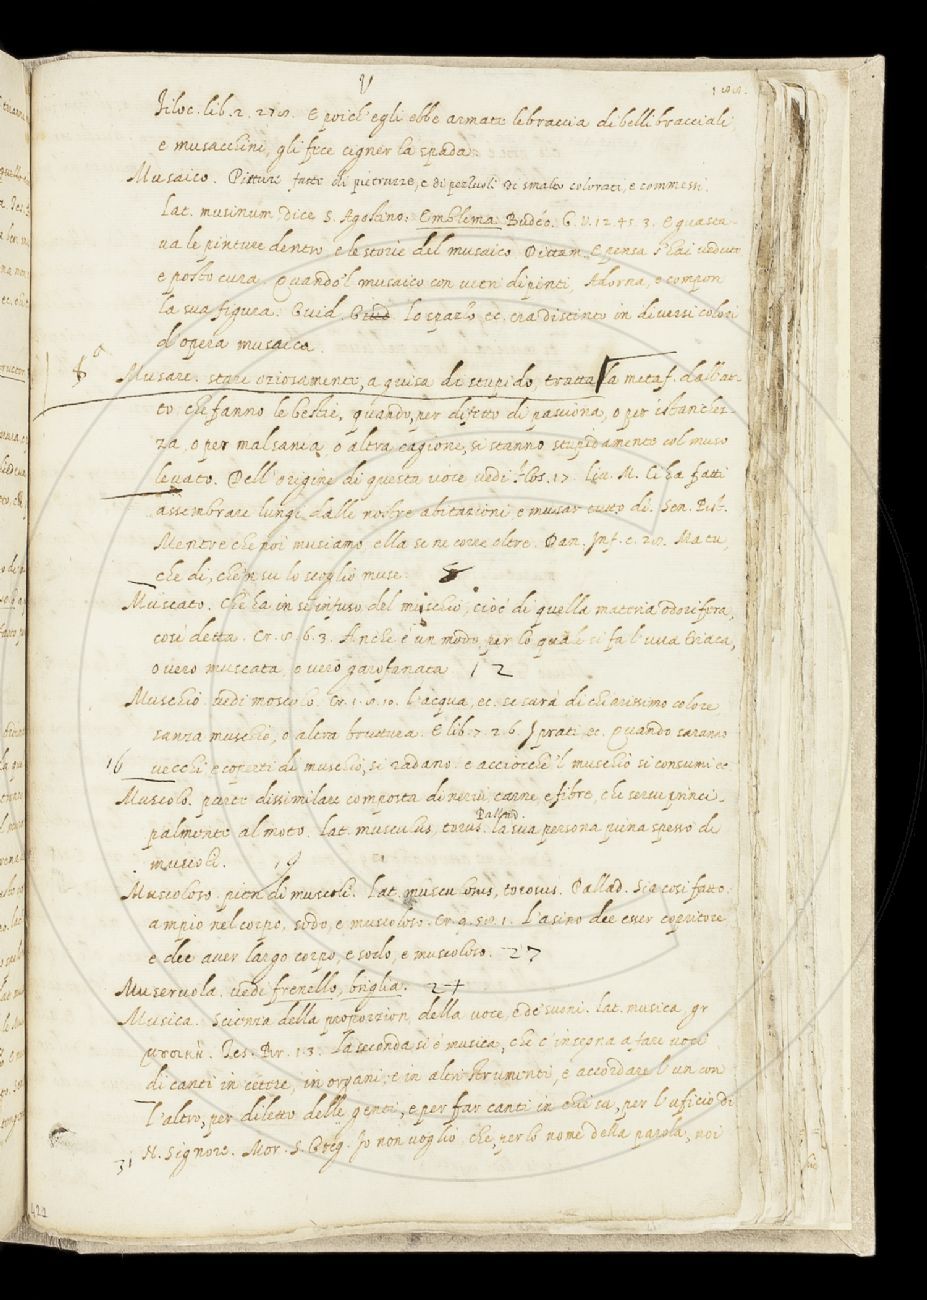 V
Filoc. lib. 2. 278. E poich' egli ebbe armate le braccia di belli bracciali
e musacchini, gli fece cigner la spada.
Musaico. Pitture fatte di pietruzze, e di pezzuoli di smalto colorati, e commessi.
Lat. musinum dice S. Agostino. Emblema Budeo. G. V. 12. 45. 3. E guasta-
va le pinture dentro e le storie del musaico. Dittam. E pensa s' hai veduto
e posto cura. Quando 'l musaico con vetri dipinti, Adorna, e compon
la sua figura. Guid. Guid. Lo spazo ec. era distinto in diversi colori
d' opera musaica.
Musare. stare oziosamente, a guisa di stupido, tratta la metaf. dall' at-
to, che fanno le bestie, quando, per difetto di pastura, o per istanchez-
za, o per malsania, o altra cagione, si stanno stupidamente col muso
levato. Dell' origine di questa voce vedi Flos. 17. Liv. M. li ha fatti
assembrare lungi dalle nostre abitazioni e musar tutto dì. Sen. Pist.
Mentre che noi musiamo, ella se ne corre oltre. Dan. Inf. c. 28. Ma tu,
che di, che 'n su lo scoglio muse.
Muscato. Che ha in se infuso del muschio, cioé di quella materia odorifera,
così detta. Cr. 8. 6. 3. Anche è un modo, per lo quale si fa l' uva triaca,
o vero muscata, o vero garofanata. 12
Muschio. vedi moscolo. Cr. 1. 8. 10. l' acqua, ec. se sarà di chiarissimo colore
sanza muschio, o altra bruttura. E lib. 7. 2. 6. I prati, ec. Quando saranno
16 vecchi e coperti di muschio, si radano. e acciocchè 'l muschio si consumi ec.
Muscolo. parte dissimilare composta di nervi carne, e fibre, che serve princi-
palmente al moto. Lat. musculus, torus. Pallad. la sua persona piena spesso di
muscoli. 19
Muscoloso. pien di muscoli. Lat. musculosus, torosus. Pallad. Sia così fatto.
ampio nel corpo, sodo, e muscoloso. Cr. 9. 58. 1. L' asino dee esser copritore
e dee aver largo corpo, e sodo, e muscoloso. 27
Museruola. vedi frenello, briglia. 24
Musica. Scienza della proporzion della voce, e de' suoni. lat. musica, gr
μουσικὴ. Tes. Br. 1. 3. La seconda si è musica, che c' insegna a fare voci
di canti in cetere, in organi, e in altri strumenti, e accordare l' un con
l' altro, per diletto delle genti, e per far canti in chiesa, per l' uficio di
31 N. Signore. Mor. S. Greg. Io non voglio che, per lo nome della parola, noi
422